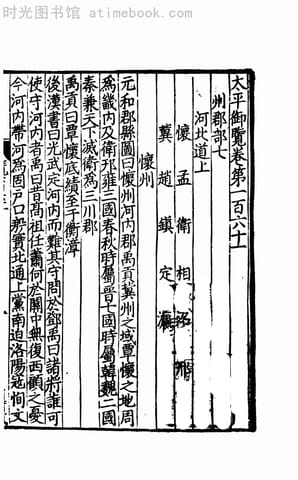 时光图书馆 - atimebook.com
太平御覽卷第一百六十一
州郡部七
河北道上
懷 孟 衛 相 洺 邢
冀 趙 鎮 定
懷州
元和郡縣圖曰懷州河內郡禹貢冀州之域覃懷之地周
為畿內及衛邢雍三國春秋時屬晉七國時屬韓魏二國
秦兼天下滅衛為三川郡
禹貢曰覃懷底績至于衡漳
後漢書曰光武定河內而難其守問於鄧禹曰諸將誰可
使守河內者禹曰昔高祖任蕭何於關中無復西顧之憂
今河內帶河為固户口殷實北通上黨南迫洛陽寇恂文